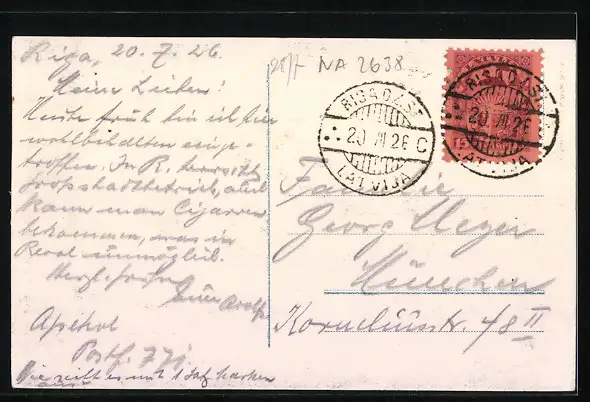 Riga, 20.7.26.
Meine Lieben!
Heute früh bin ich hier
wohlbehalten einge-
troffen. In R. herrscht
großstadtbetrieb, auch
kann man Cigarren
bekommen, was in
Reval unmöglich.
Herzl. Grüße
Euer Adolf
Postf. 77j.
28/7 NA 2638
RIGA
20 VII 26 C
LATVIJA
RIGA
20 VII 26
LATVIJA
15
Familie
Georg Meyer
München
Korneliusstr. 48 II